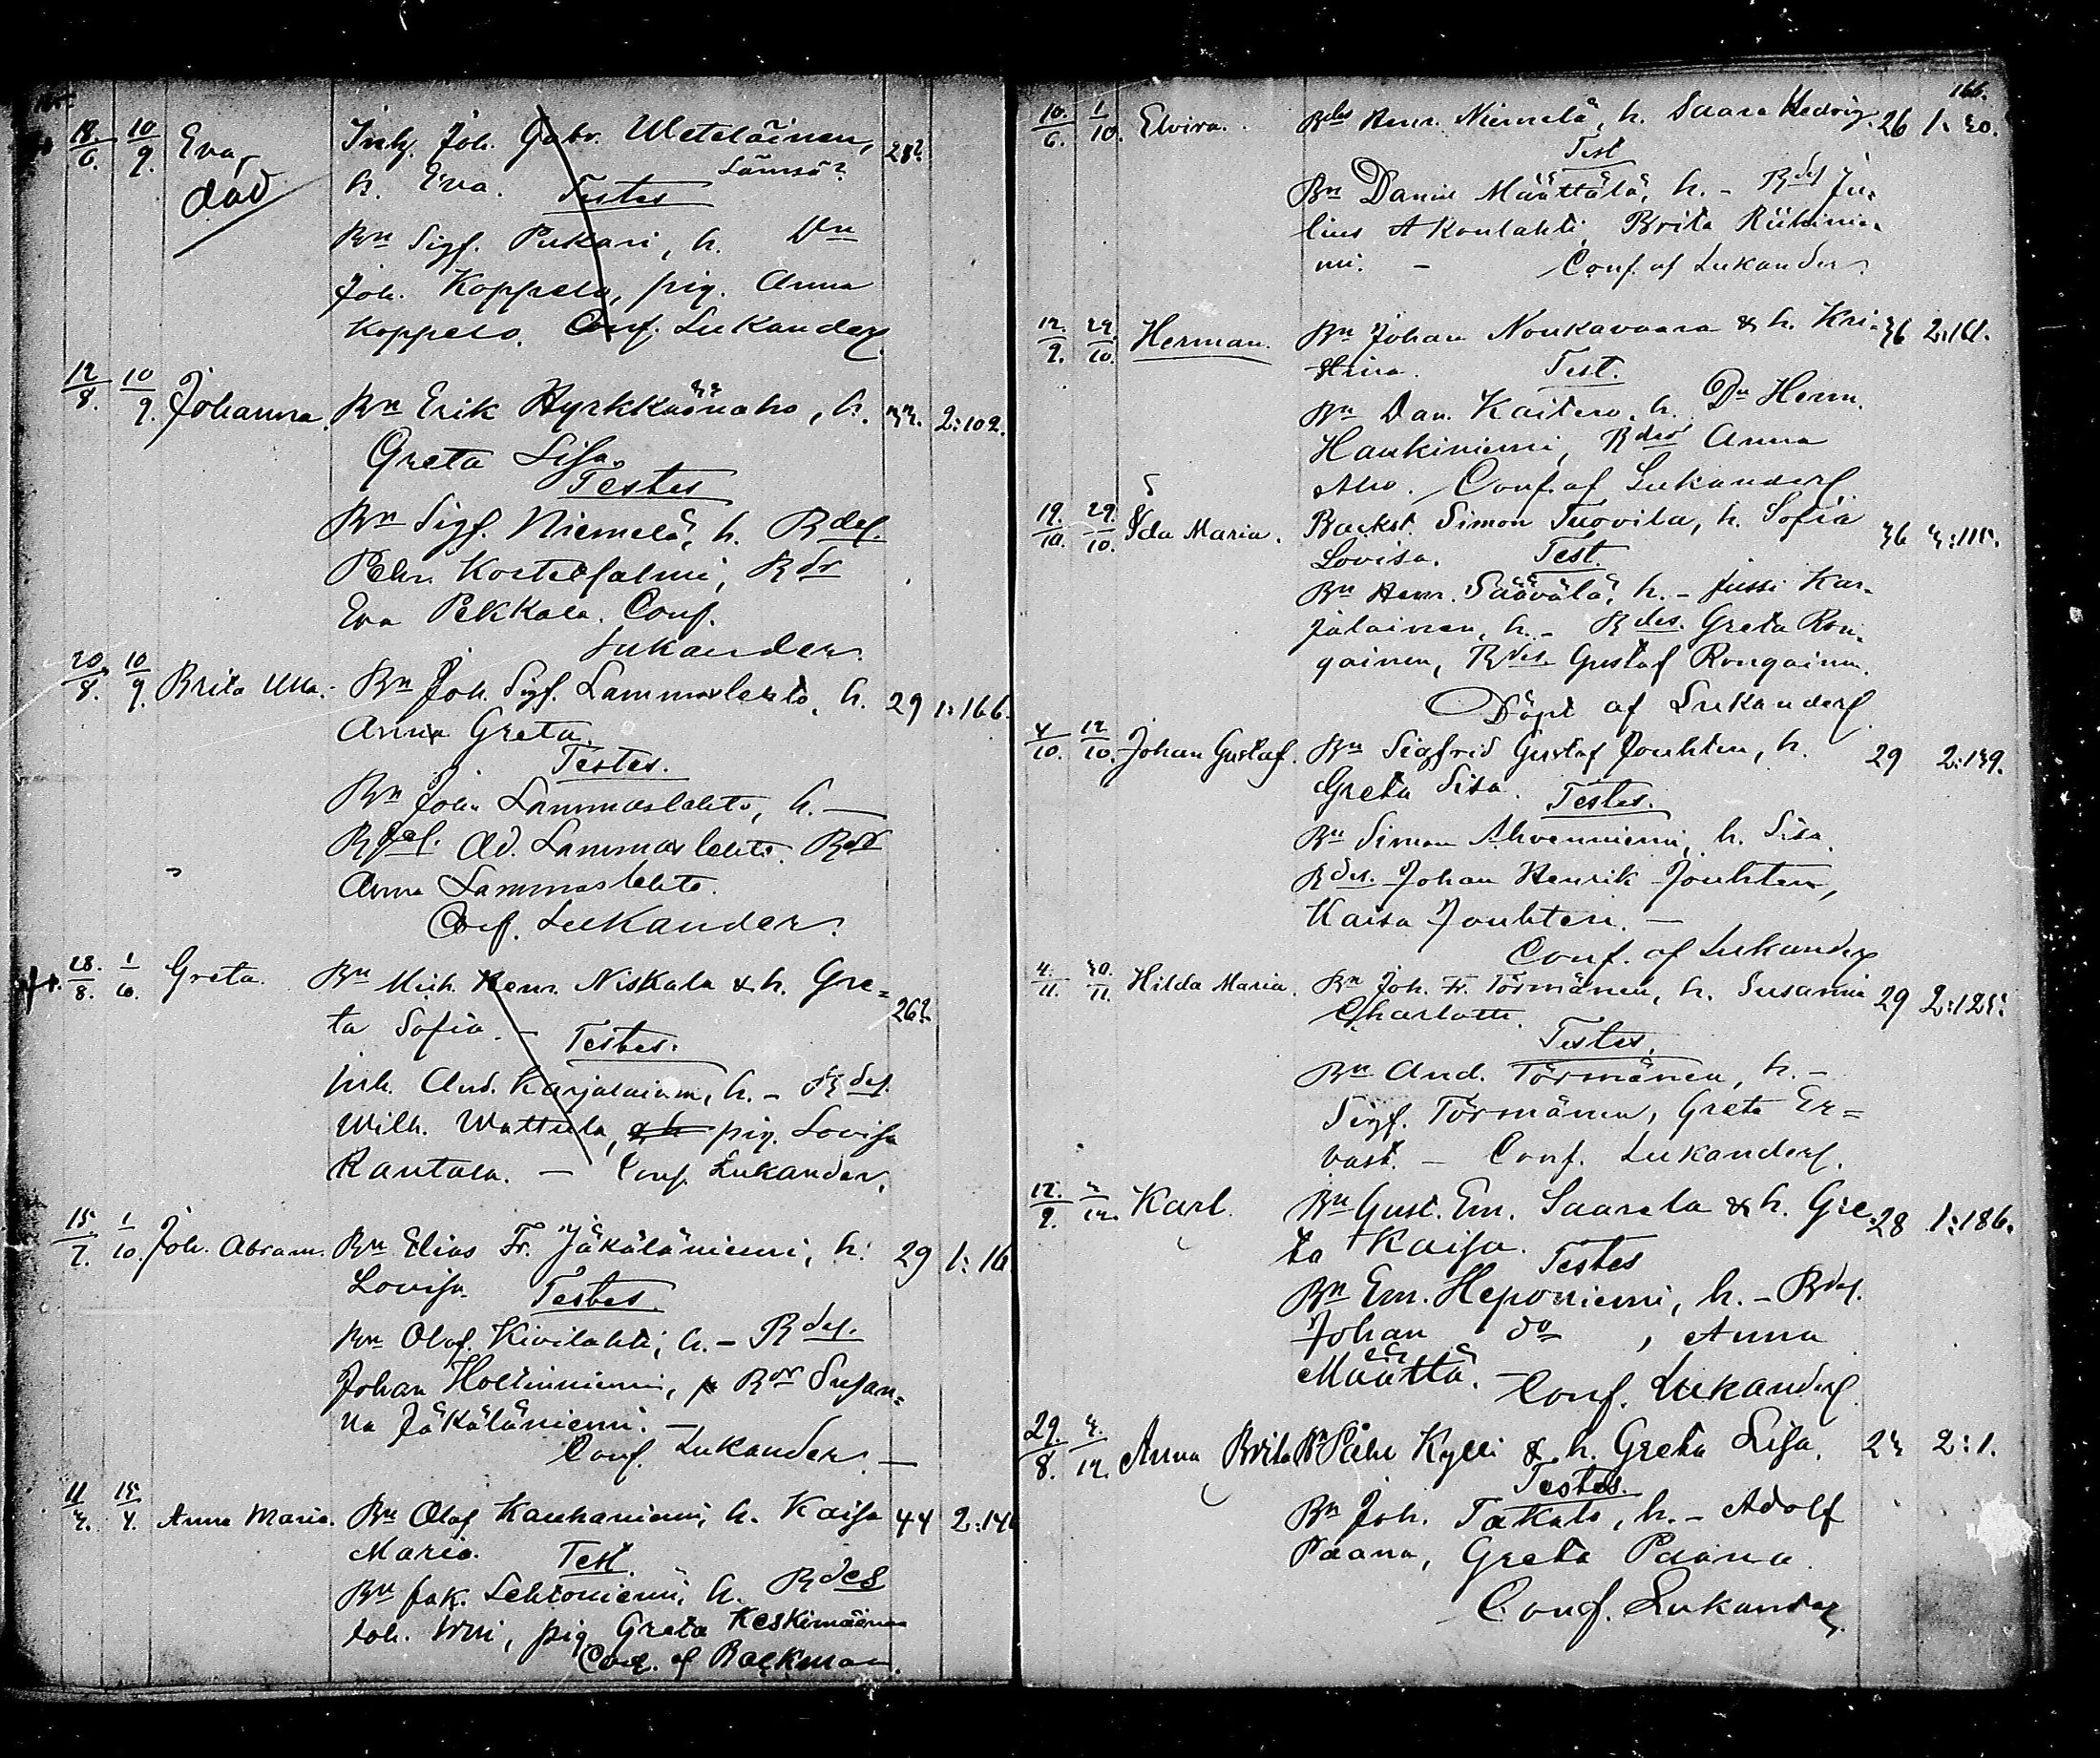 18/6. 10/9. Eva, Inh. Joh. Gabr. Weteläinen, 28?
död h. Eva. Testes Lämsä?
Bn Sigf. Pukari, h. Dn
Joh. Koppelo, pig. Anna
Koppelo. Conf. Lukander.
12/8. 10/9. Johanna. Bn Erik Hyrkkäönaho, h. 32. 2:102.
Greta Lisa.
Testes
Bn Sigf. Niemelä, h. Rdes.
Pehr Kostetsalmi, Rdr
Eva Pekkala. Conf.
Lukander.
20/8. 10/9. Brita Ulla. Bn Joh. Sigf. Lammaslehto, h. 29 1:166.
Anna Greta.
Testes.
Bn Joh. Lammaslehto, h. —
Rdes. Ad. Lammaslehto. Rdr
Anna Lammaslehto.
Conf. Lukander.
28./8. 1/10. Greta. Bn Mich. Henr. Niskala & h. Gre=
ta Sofia. — Testes. 26?
Inh. And. Karjalainen, h. - Rdes.
Wilh. Wattula, & h pig. Lovisa
Rantala. — Conf. Lukander.
15/7. 1/10. Joh. Abram. Bn Elias Fr. Jäkäläniemi, h. 29 1:16
Lovisa Testes.
Bn Olof. Kivilahti, h. - Rdes.
Johan Hoikinniemi, Rdr Susan=
na Jäkäläniemi. —
Conf. Lukander. —
11/3. 15/4. Anna Maria. Bn Olof Kauhaniemi, h. Kaisa 44 2:14
Maria. Test.
Bn Jak. Lehtoniemi, h. Rdes
Joh. Irni, pig Greta Keskimäinen
Conf. af Backman.
166.
10./6. 1/10. Elvira. Rdes Henr. Niemelä, h. Saara Hedvig. 26 1:30.
Test
Bn Daniel Määttälä, h. - Rdes Ju-
lius Akonlahti, Brita Riihinie-
mi. - Conf. af Lukander.
12./9. 29./10. Herman. Bn Johan Noukavaara & h. Kri- 36 2:161.
stina. Test.
Bn Dan. Kaitero, h. Dn Herm.
Haukiniemi, Rdes Anna
Aho. Conf. af Lukander.
19./10. 29./10. Ida Maria. Backst. Simon Tuovila, h. Sofia 36 3:115.
Lovisa. Test.
Bn Henr. Säävälä, h. - Jussi Kar-
jalainen, h. - Rdes. Greta Ron-
gainen, Rdes. Gustaf Rongainen.
Döpt af Lukander.
4/10. 12/10. Johan Gustaf. Bn Sigfrid Gustaf Jouhten, h. 29 2:139.
Greta Lisa. Testes.
Bn Simon Ahvenniemi, h. Lisa.
Rdes. Johan Henrik Jouhten,
Kaisa Jouhten. —
Conf. af Lukander
4./11. 30./11. Hilda Maria. Bn Joh. Fr. Törmänen, h. Susanna 29 2:125.
Charlotta.
Testes.
Bn And. Törmänen, h. -
Sigf. Törmänen, Greta Er=
vast. - Conf. Lukander.
12./9. 2/12. Karl. Bn Gust. Em. Saarela & h. Gre- 28 1:186.
ta Kaisa. Testes
Bn Em. Heponiemi, h. - Rdes.
Johan do, Anna
Määttä. - Conf. Lukander.
29./8. 3./12. Anna Brita Bn Påhl Kylli & h. Greta Lisa. 23 2:1.
Testes.
Bn Joh. Takalo, h. - Adolf
Paana, Greta Paana.
Conf. Lukander.